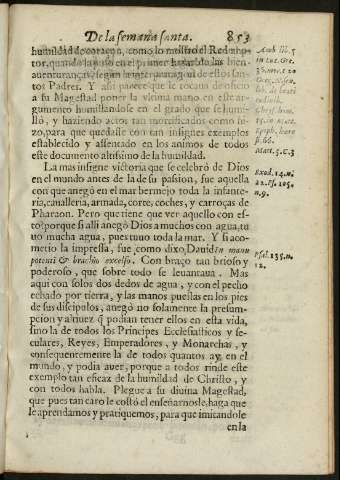 De la semana santa. 853
humildad de coraçon, como lo mostro el Redemp
tor, quando la puso en el primer lugar de las bien-
auenturanças, segun la interpretacion destos san-
tos Padres. Y assi parece que le tocaua de oficio
a su Magestad poner la vltima mano en este ar-
gumento humillandose en el grado que se humi-
llò, y haziendo actos tan mortificados como hi-
zo, para que quedasse con tan insignes exemplos
establecido y assentado en los animos de todos
este documento altissimo de la humildad.
La mas insigne victoria que se celebrò de Dios
en el mundo antes de la de su passion, fue aquella
con que anegò en el mar bermejo toda la infante-
ria, caualleria, armada, corte, coches, y carroças de
Pharaon. Pero que tiene que ver aquello con es-
to? porque si alli anegò Dios a muchos con agua, tu
uo mucha agua, pues tuuo toda la mar. Y si aco-
metio la impressa, fue como dixo Dauid in manu
potenti & brachio excelso. Con braço tan brioso y
poderoso, que sobre todo se leuantaua. Mas
aqui con solos dos dedos de agua, y con el pecho
echado por tierra, y las manos puestas en los pies
de sus discipulos, anegò no solamente la presum-
pcion y altiuez q̃ podian tener ellos en esta vida,
sino la de todos los Principes Ecclesiasticos y se-
culares, Reyes, Emperadores, y Monarchas, y
consequentemente la de todos quantos ay en el
mundo, y podia auer, porque a todos rinde este
exemplo tan eficaz de la humildad de Christo, y
con todos habla. Plegue a su diuina Magestad,
que pues tan caro le costò el enseñarnosle, haga que
le aprendamos y pratiquemos, para que imitandose
en la
Amb. lib. 5
in Luc. Gre.
Mat. 5. C. 3
Exod. 14. n.
22. Ps. 105.
n. 9.
Psal. 135. n.
12.